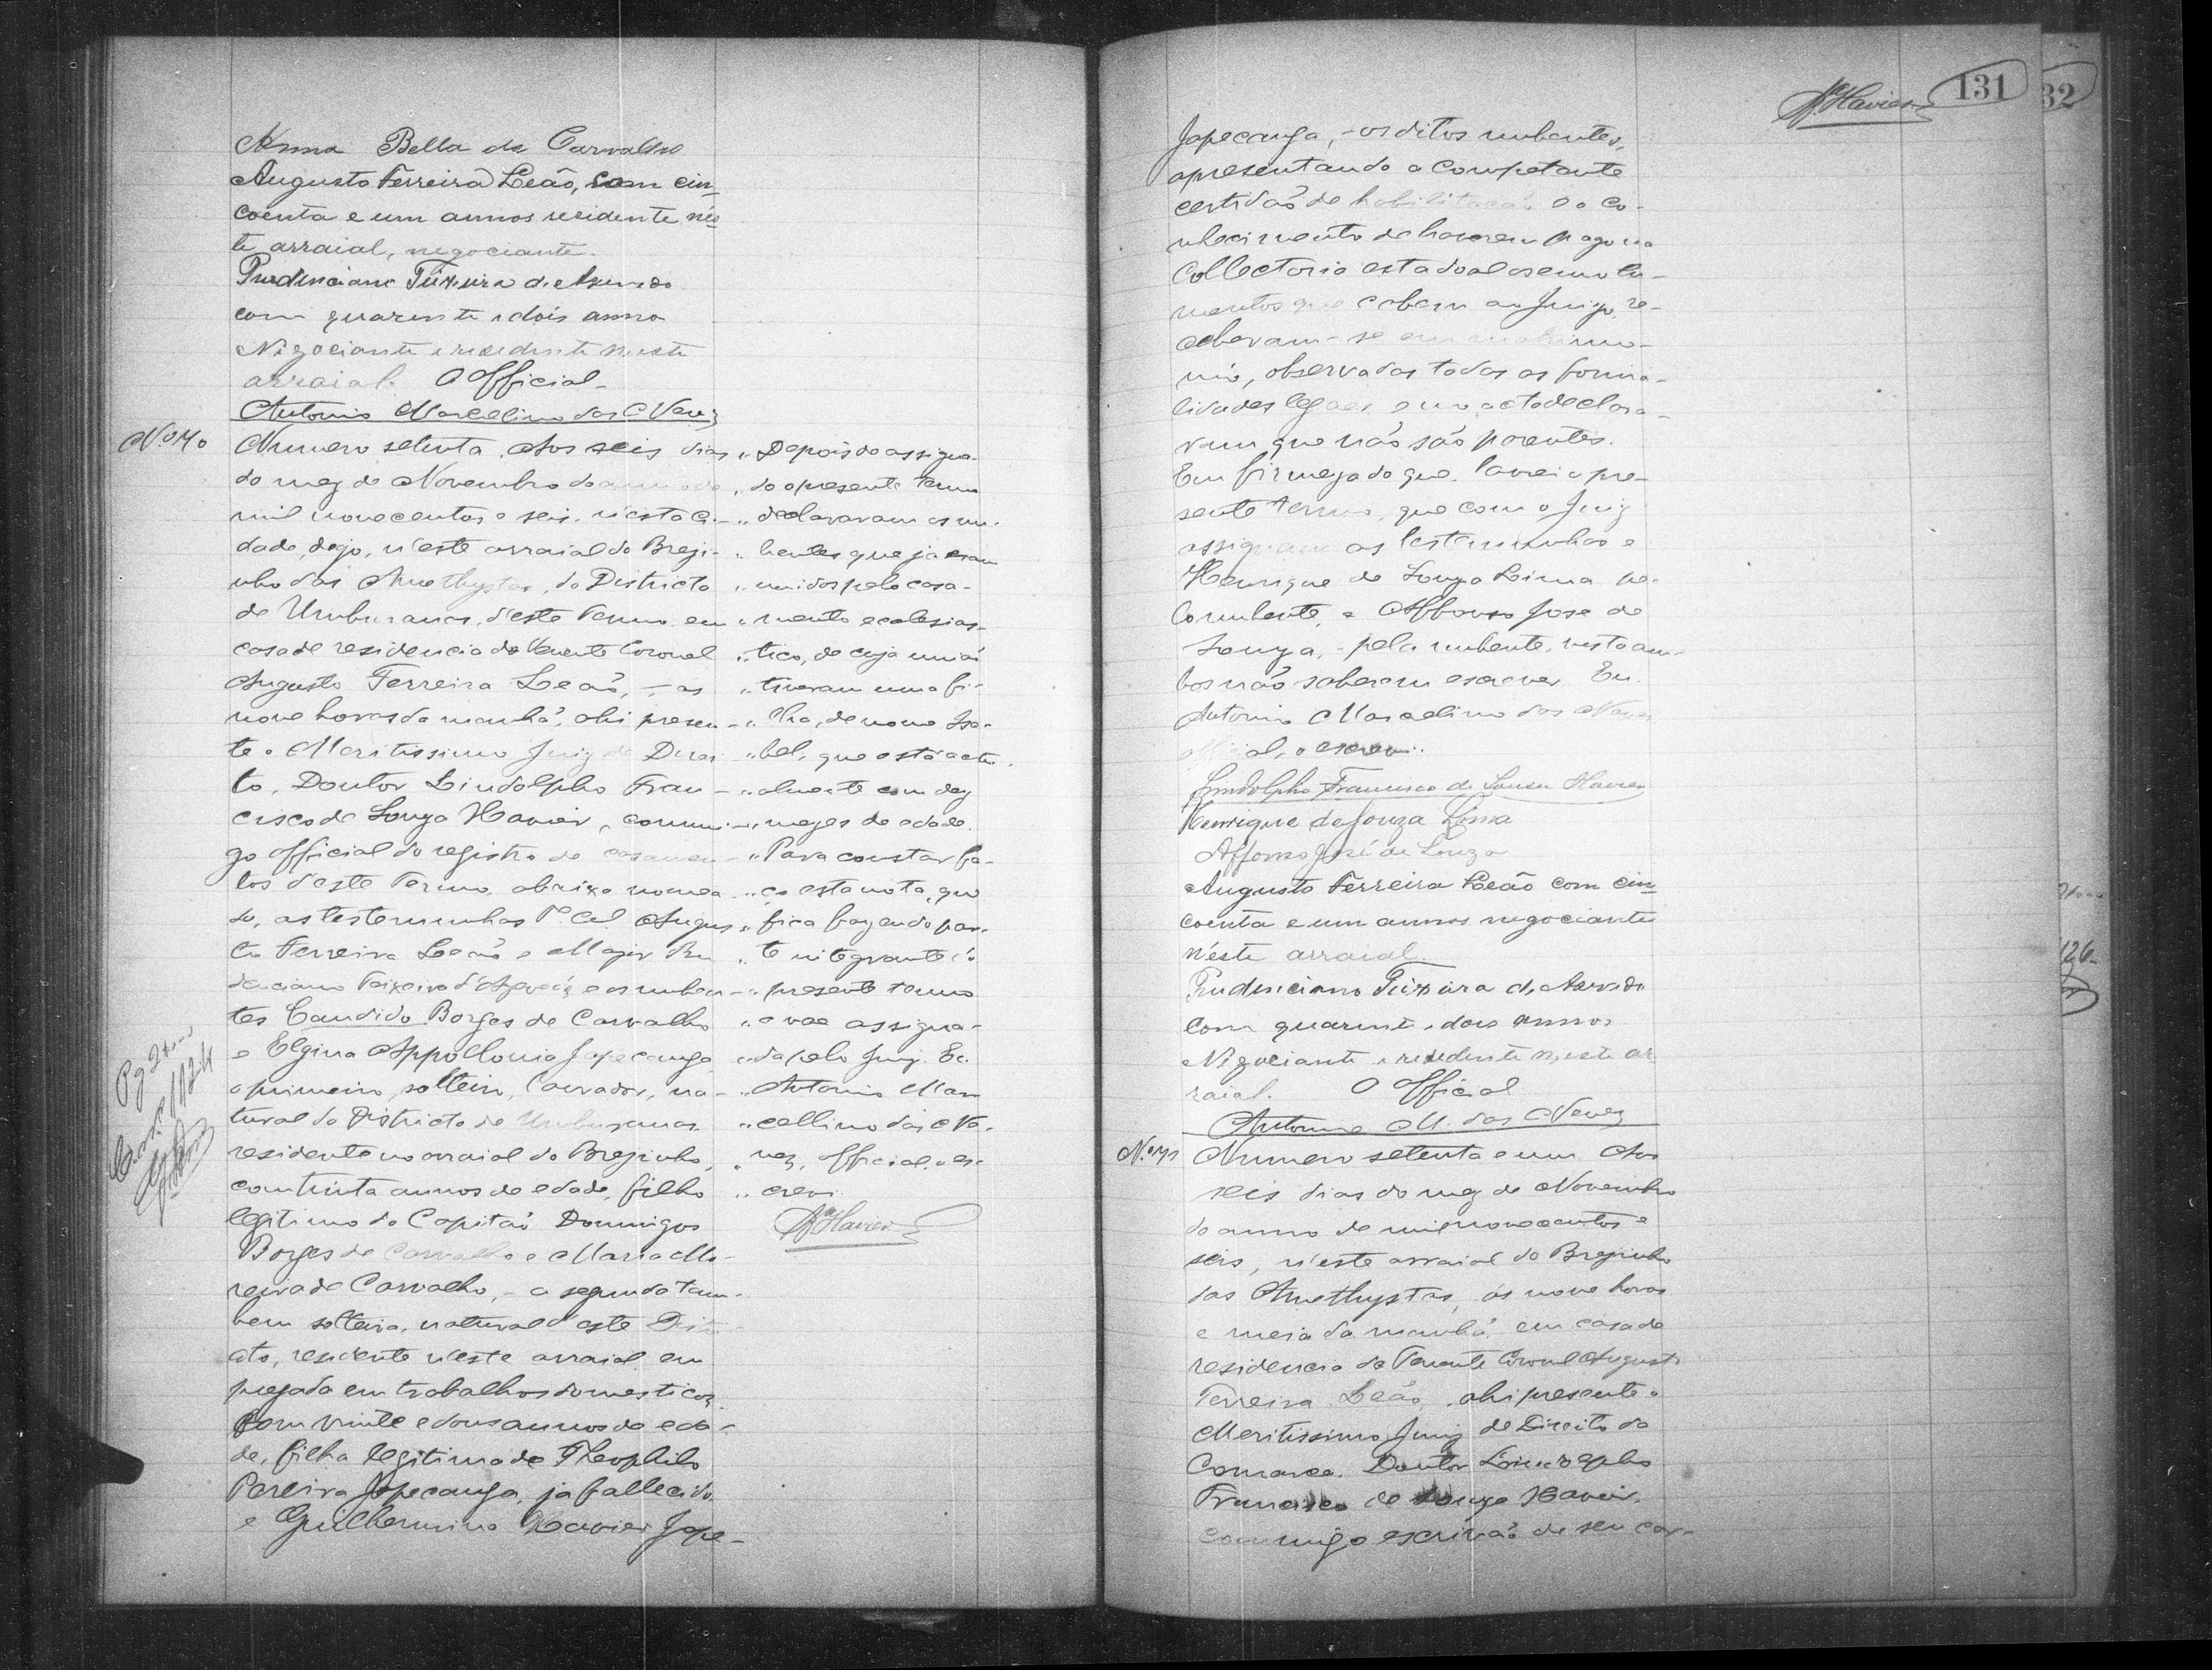 Anna Bella de Carvalho
Augusto Ferreira Leão, com cin
coenta e um annos residente nés
te arraial, negociante.
Prudenciano Teixeira de Asevedo
com quarente e dois anno
Nigociante e residente neste
arraial. O Official
Antonio Marcellino das Neves
Nº 70
Numero setenta. Aos seis dias
do mez de Novembro do anno de
mil novecentos e seis, n'esta Ci-
dade, digo, n'este arraial do Breji-
nho das Amethystas, do Districto
de Umburanas, d'este Termo, em
casa de residencia do Tenente Coronel
Augusto Ferreira Leaõ, - as
nove horas da manhã, ahi presen-
te o Meritissimo Juiz de Direi
to, Doutor Lindolpho Fran-
cisco de Souza Xavier, commi-
go official do registro de casamen-
tos d'este Termo, abaixo nomea
do, as testemunhas Tº Cel Augus
to Ferreira Leaõ e Major Pru
denciano Teixeira d'Azevedo e os nuben-
tes Candido Borges de Carvalho
e Elgina Appollonia Japecanga
o primeiro, solteiro, lavrador, na-
tural do Districto de Umburanas
residente no arraial do Brejinho,
com trinta annos de edade, filho
legitimo do Capitaõ Domingos
Borges de Carvalho e Maria Mo-
reira de Carvalho, - a segunda tam-
bem solteira, natural d'este Distri
cto, residente n'este arraial, em
pregada em trabalhos domesticos,
com vinte e dous annos de eda-
de, filha legitima de Theophilo
Pereira Japecanga, ja fallecido
e Guilhermina Xavier Jape-
Depois de assigna-
do o presente termo
declararam os nu-
bentes que ja eram
unidos pelo casa-
mento ecclesias-
tico, de cuja uniaõ
tiveram uma fi-
lha, de nome Isa-
bel, que está actu-
almente com dez
mezes de edade.
Para constar fa-
ço esta nota, que
fica fazendo par-
te integrante do
presente termo
e vae assigna-
da pelo Juiz. Eu
Antonio Mar
cellino das Ne-
ves, official, o es-
crevi.
Xavier
Japecanga, - os ditos nubentes,
apresentando a competente
certidaõ de habilitaçaõ e o co-
nhecimento de haverem pago na
Collectoria estadoal os emolu-
mentos que cabem ao Juizo, re-
ceberam-se em matrimo-
nio, observadas todas as forma-
lidades legaes, e no acto declara-
ram que não são parentes.
Em firmeza do que lavrei o pre-
sente termo, que com o Juiz
assignam as testemunhas e
Henrique de Souza Lima pe-
lo nubente, e Affonso Jose de
Souza, - pela nubente, visto am-
bos não saberem escrever. Eu.
Antonio Marcellino das Neves
official, o escrevi.
Lindolpho Francisco de Sousa Xavier
Henrique de Souza Lima
Affonso José de Souza
Augusto Ferreira Leão com cin
coenta e um annos negociante
n'este arraial.
Prudenciano Teixeira de Asevedo
com quarente e dois annos
Nigociante e residente neste ar
raial. O Official
Antonio M. das Neves
Nº 71
Numero setenta e um. Aos
seis dias do mez de Novembro
do anno de mil novecentos e
seis, n'este arraial do Brejinho
das Amethystas, ás nove horas
e meia da manhã, em casa de
residencia do Tenente Coronel Augusto
Ferreira Leão, ahi presente o
Meritissimo Juiz de Direito da
Comarca, Doutor Lindolpho
Francisco de Souza Xavier,
commigo escrivaõ de seu car-
Xavier
131
32